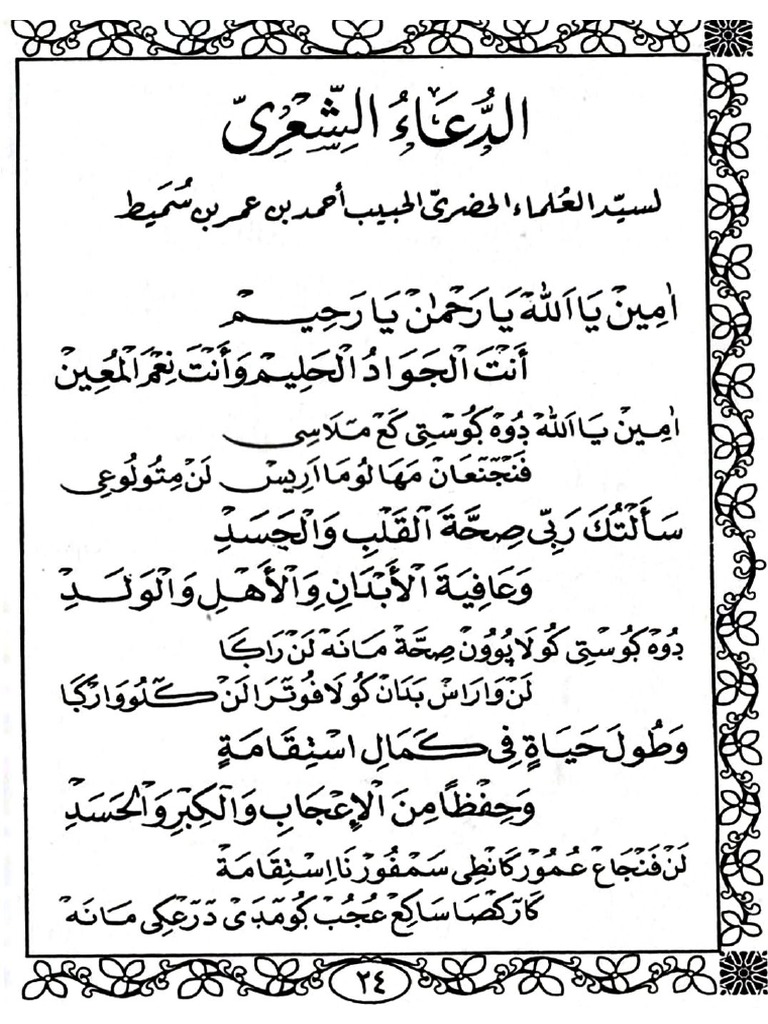 الدُّعَاءُ الشِّعْرِىّ
لسيّد العُلماء الحضرىّ الحبيب أحمد بن عمر بن سُمَيط
اٰمِينْ يَا اَللهْ يَا رَحْمٰنْ يَا رَحِيـــمْ
أَنْتَ الْجَوَادُ الْحَلِيمْ وَأَنْتَ نِعْمَ الْمُعِينْ
اٰمِـينْ يَـا اَللهْ دُوْهْ ݢُوسْتِى كَڠْ مَـلَاسِى
فَنْجَنَّعَانْ مَهَا لُومَا اَرِيسْ لَنْ مِتُولُوڠِى
سَـأَلْتُكَ رَبِّى صِحَّةَ الْقَلْبِ وَالْجَسَدِ
وَعَافِيَةَ الْأَبْدَانِ وَالْأَهْـلِ وَالْوَلَـــدِ
دُوْهْ ݢُوسْتِى كُولَا پُوْوُونْ صِحَّةْ مَـانَهْ لَنْ رَاݢَا
لَنْ وَارَاسْ بَدَانْ كُولَا فُوتْرَا لَنْ كَـلُووَارْݢَا
وَطُولَ حَيَاةٍ فِى كَمَالِ اسْتِقَامَةٍ
وَحِفْظًا مِنَ الْإِعْجَابِ وَالْكِبْرِ وَالْحَسَدِ
لَنْ فَنْجَاڠْ عُمُورْ كَانْطِى سَمْفُورْنَا اِسْتِقَامَةْ
كَارَكْصَا سَاكِڠْ عُجُبْ كُومَدَى دَرَڠْكِى مَـانَهْ
٢٤